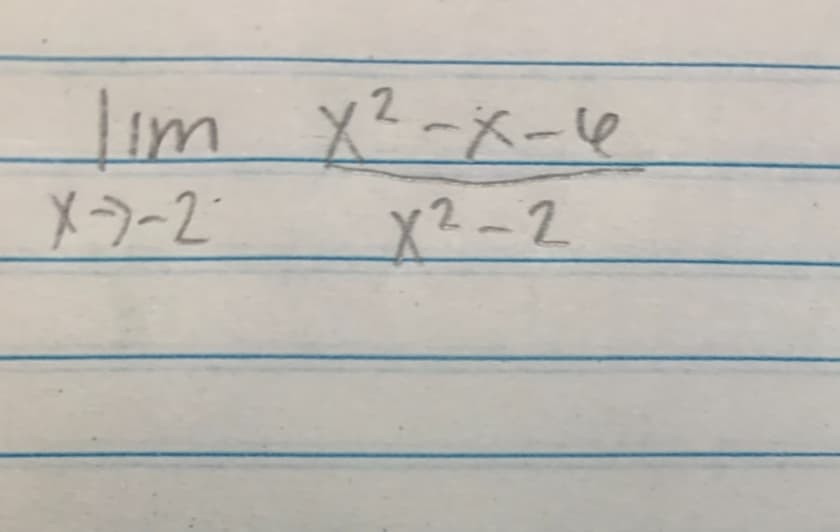 lim x² - x - 6
x → -2 x² - 2